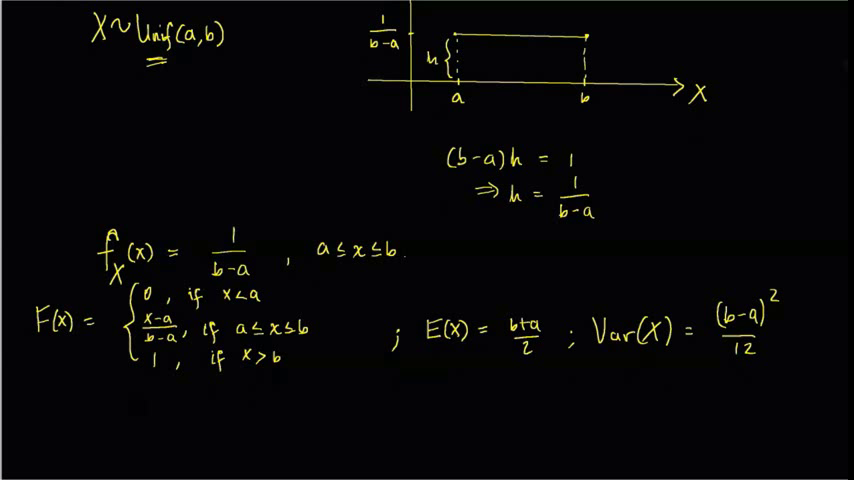 X ~ Unif(a,b)
1/(b-a)
h {
a b X
(b-a)h = 1
⇒ h = 1/(b-a)
f_X(x) = 1/(b-a) , a ≤ x ≤ b.
F(x) = { 0 , if x < a
(x-a)/(b-a) , if a ≤ x ≤ b
1 , if x > b
; E(X) = (b+a)/2 ; Var(X) = (b-a)²/12